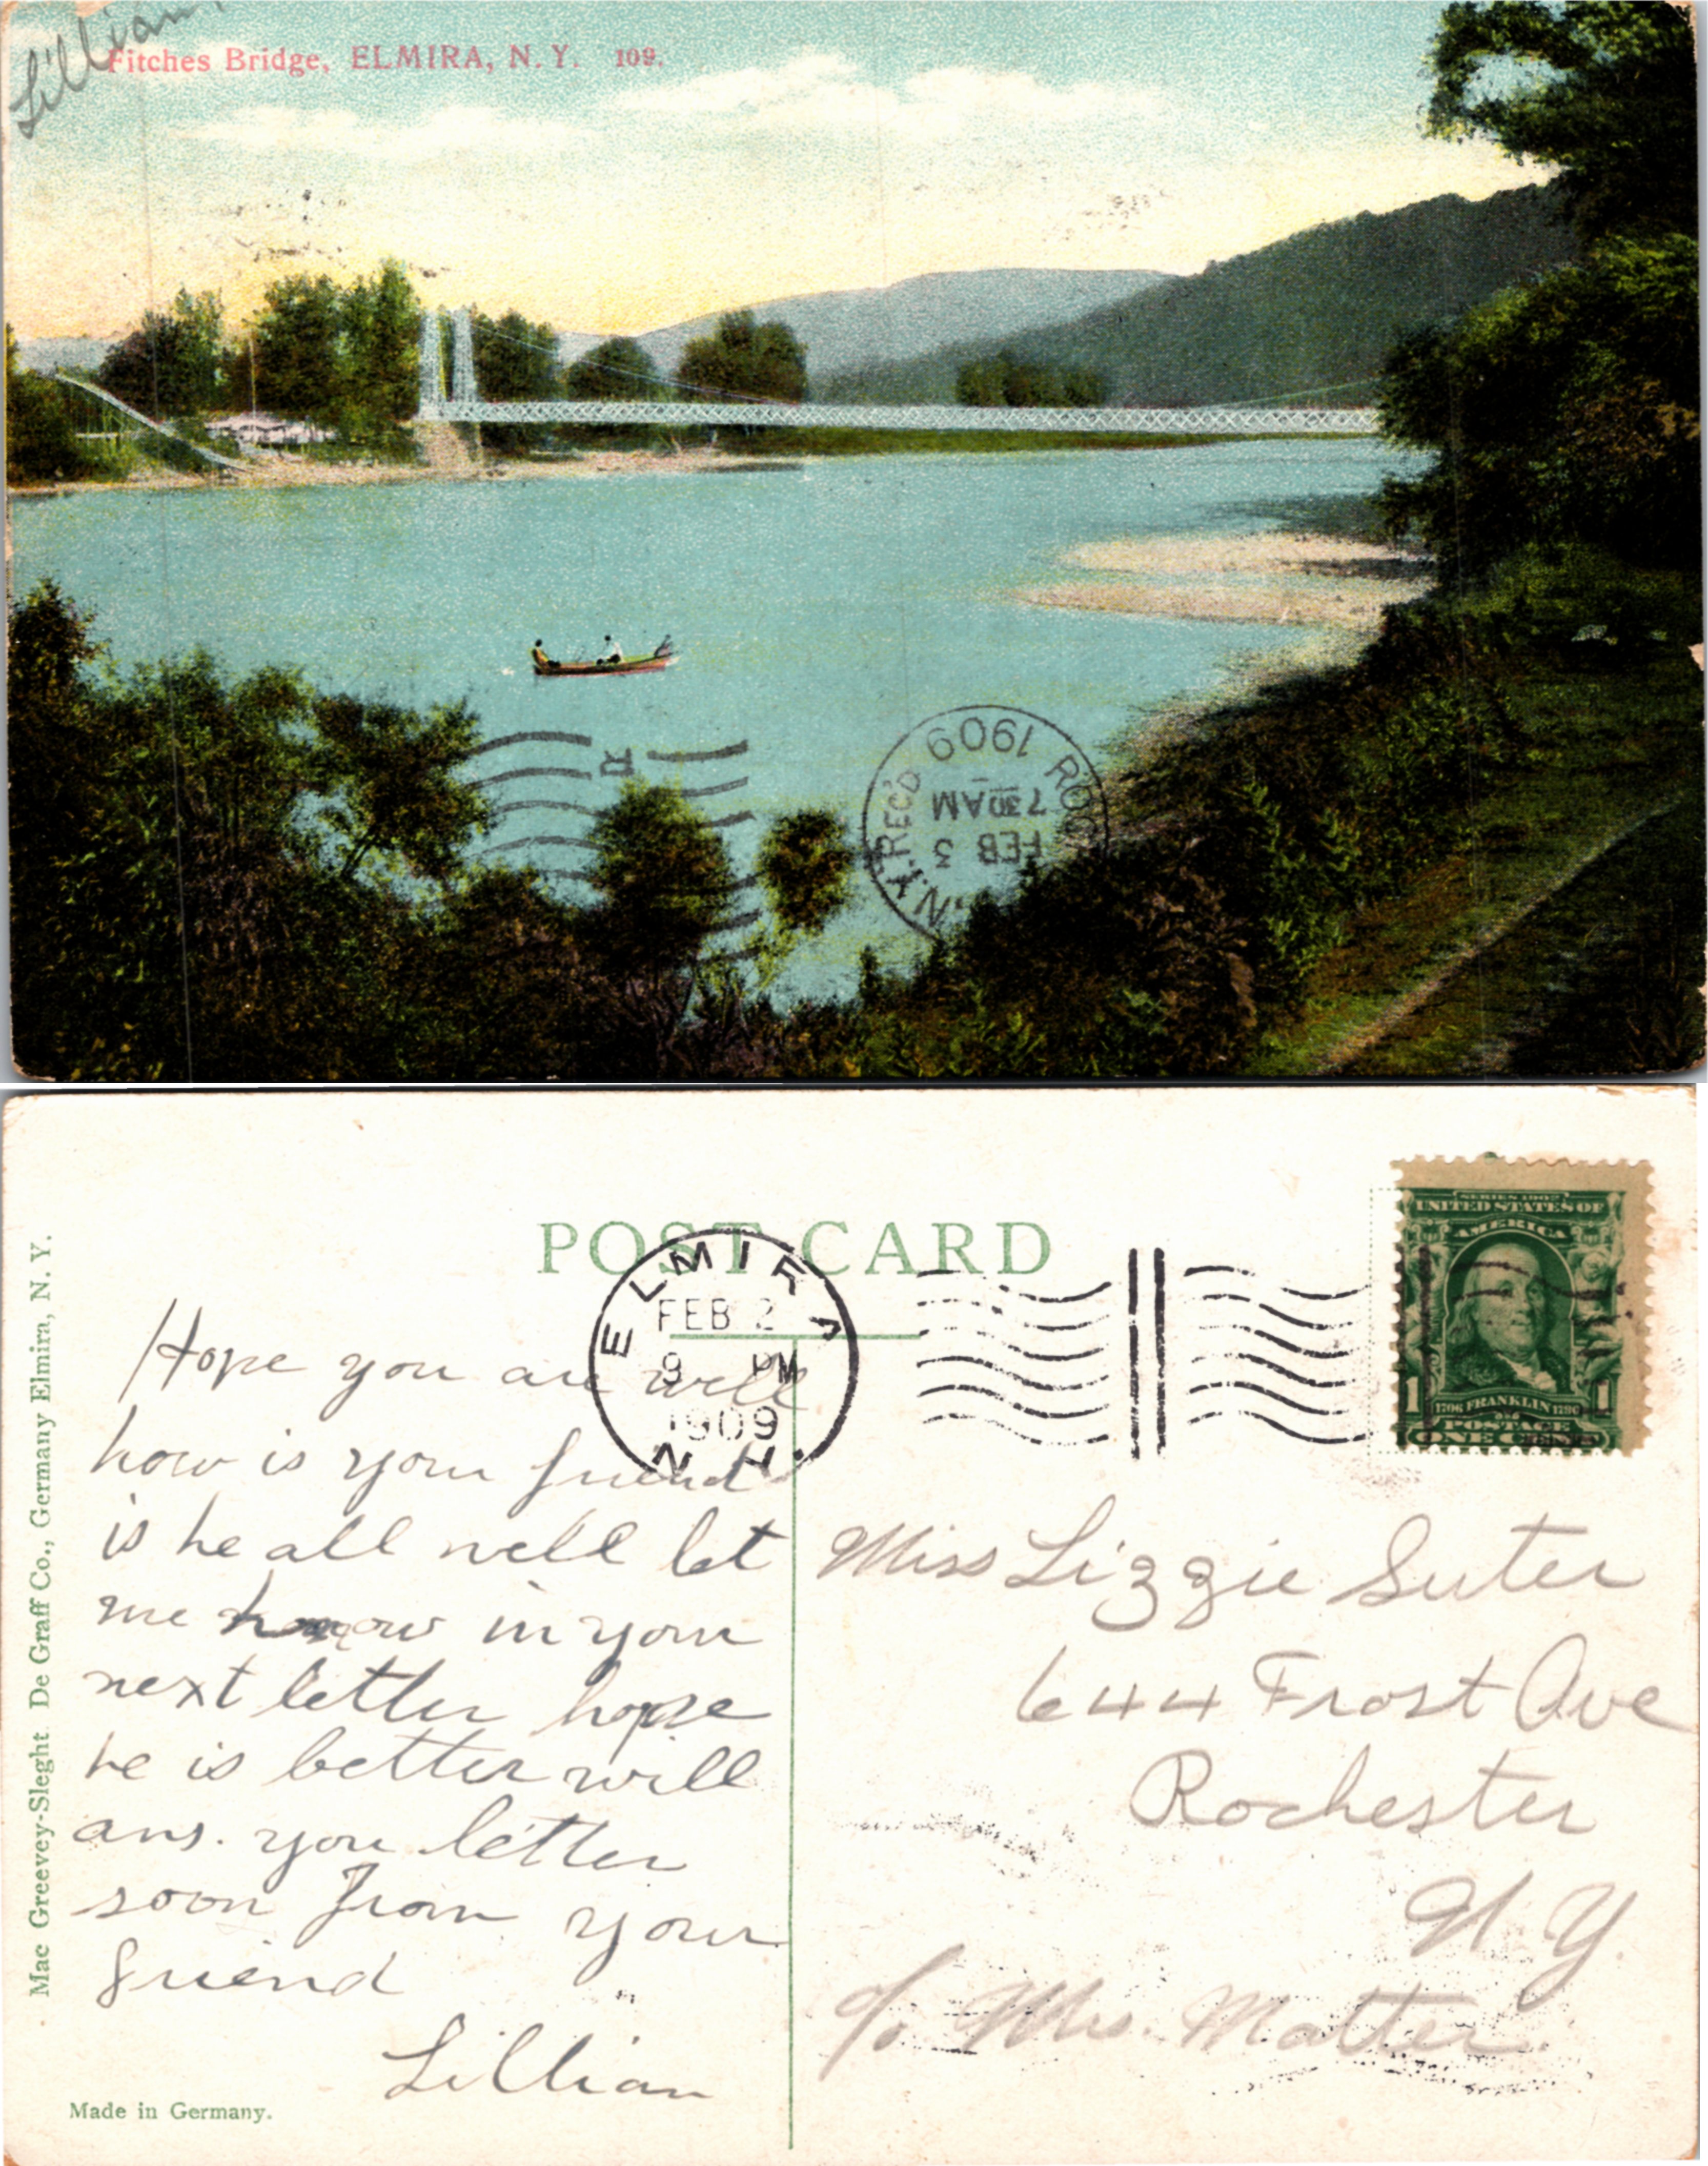 Lillian.
Fitches Bridge, ELMIRA, N. Y. 109.
R
N.Y. REC'D
1909
7 30 AM
FEB 3
POST CARD
ELMIRA
FEB 2
9 PM
1909
N. Y.
SERIES 1902
UNITED STATES OF
AMERICA
1 1
1706 FRANKLIN 1790
POSTAGE
ONE CENT
Mac Greevey-Sleght De Graff Co., Germany Elmira, N. Y.
Hope you are well
how is your friend
is he all well let
me know in your
next letter hope
he is better will
ans. you letter
soon From your
friend
Lillian
Miss Lizzie Suter
644 Frost Ave
Rochester
N. Y.
c/o Mrs. Matter.
Made in Germany.